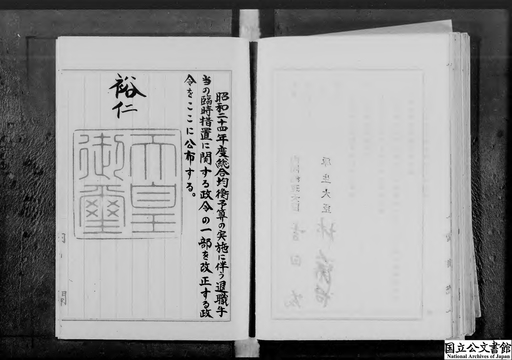 昭和二十四年度総合均衡予算の実施に伴う退職手
当の臨時措置に関する政令の一部を改正する政
令をここに公布する。
裕仁
天皇
御璽
国立公文書館
National Archives of Japan